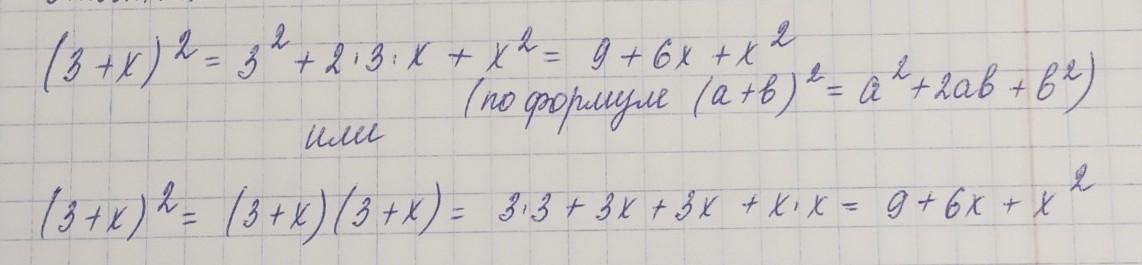 (3+x)² = 3² + 2·3·x + x² = 9 + 6x + x²
(по формуле (a+b)² = a² + 2ab + b²)
или
(3+x)² = (3+x)(3+x) = 3·3 + 3x + 3x + x·x = 9 + 6x + x²